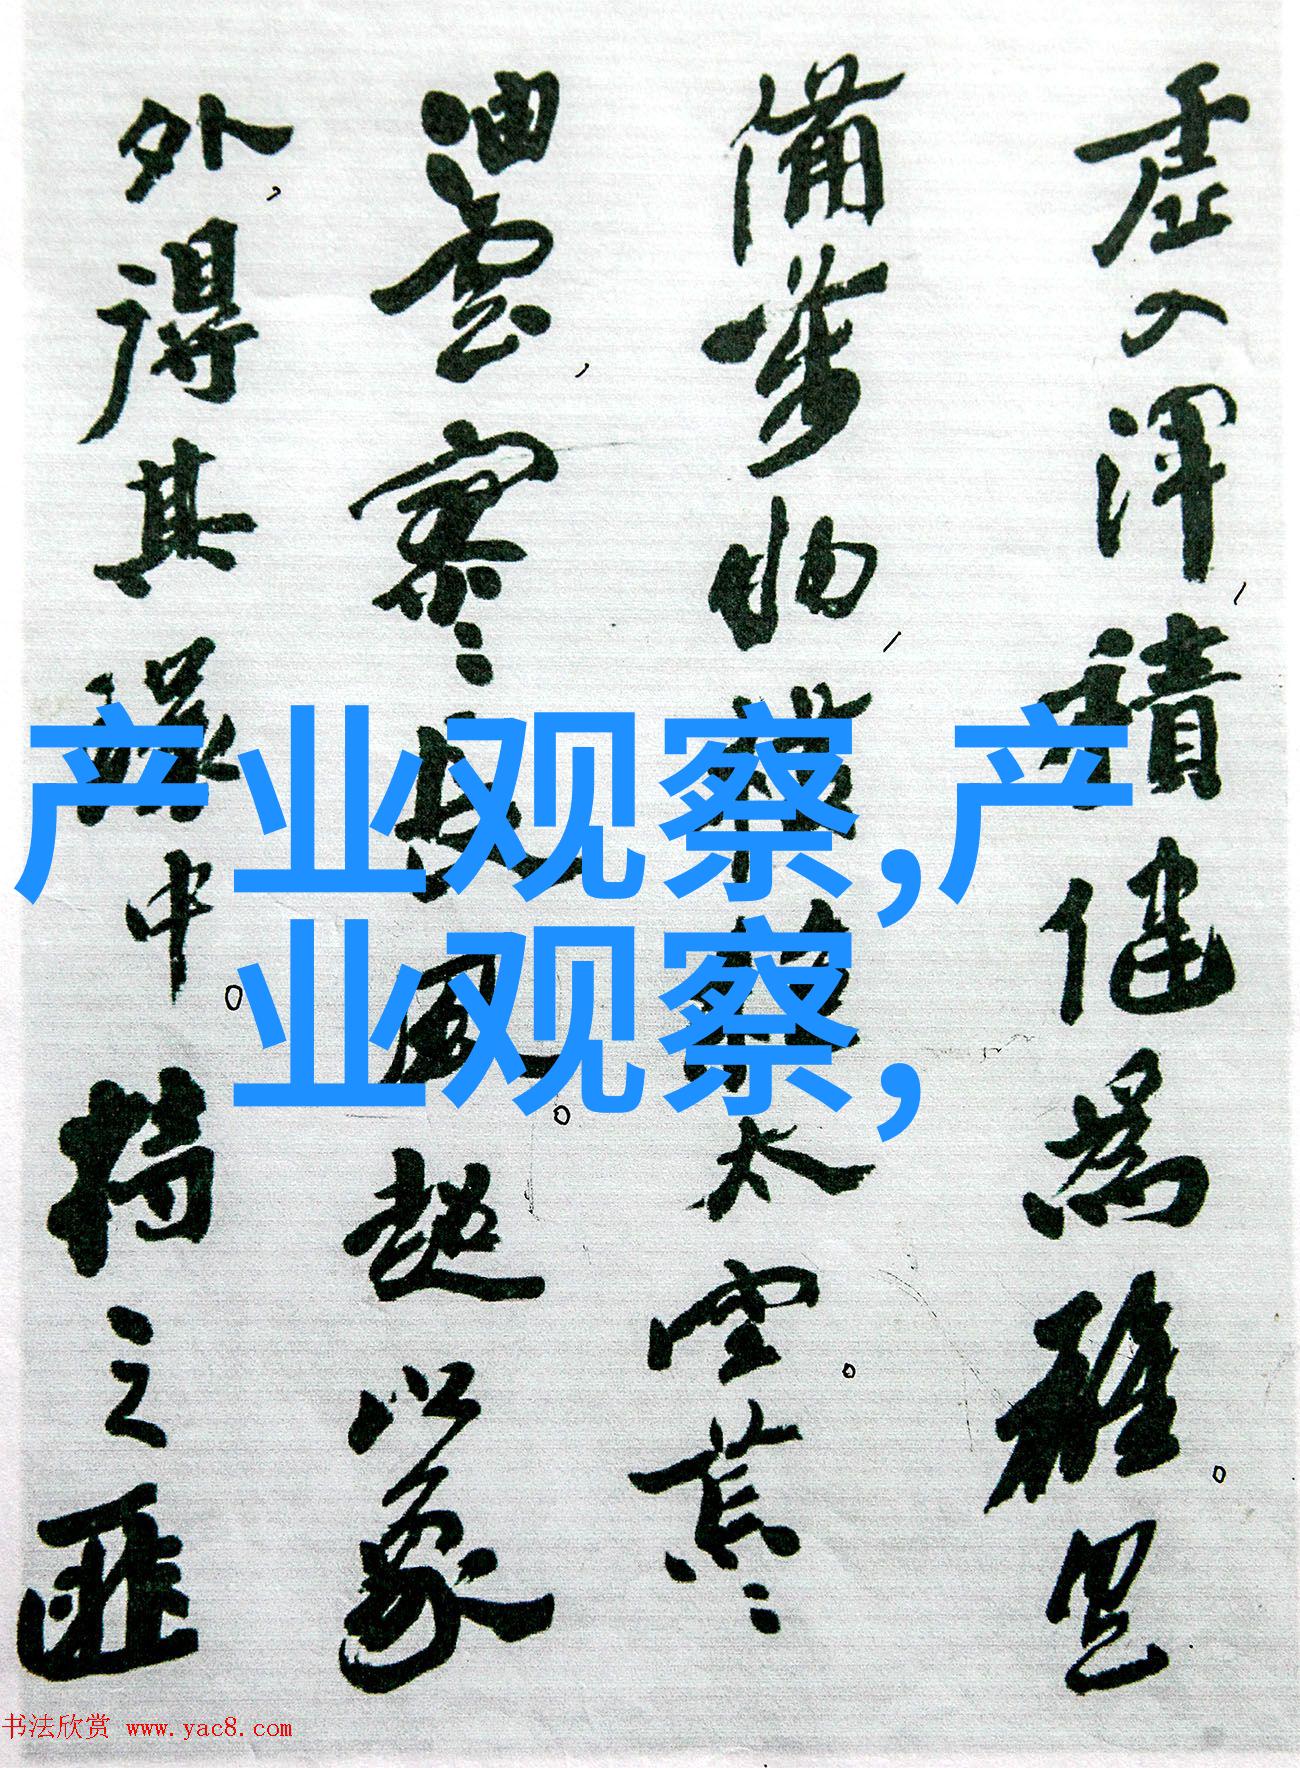 虛入渾，積健為雄。具
備萬物，橫絕太空。荒々
油雲，寥々長風。超以象
外，得其環中。持之匪
产业观察,产
业观察,
书法欣赏 www.yac8.com